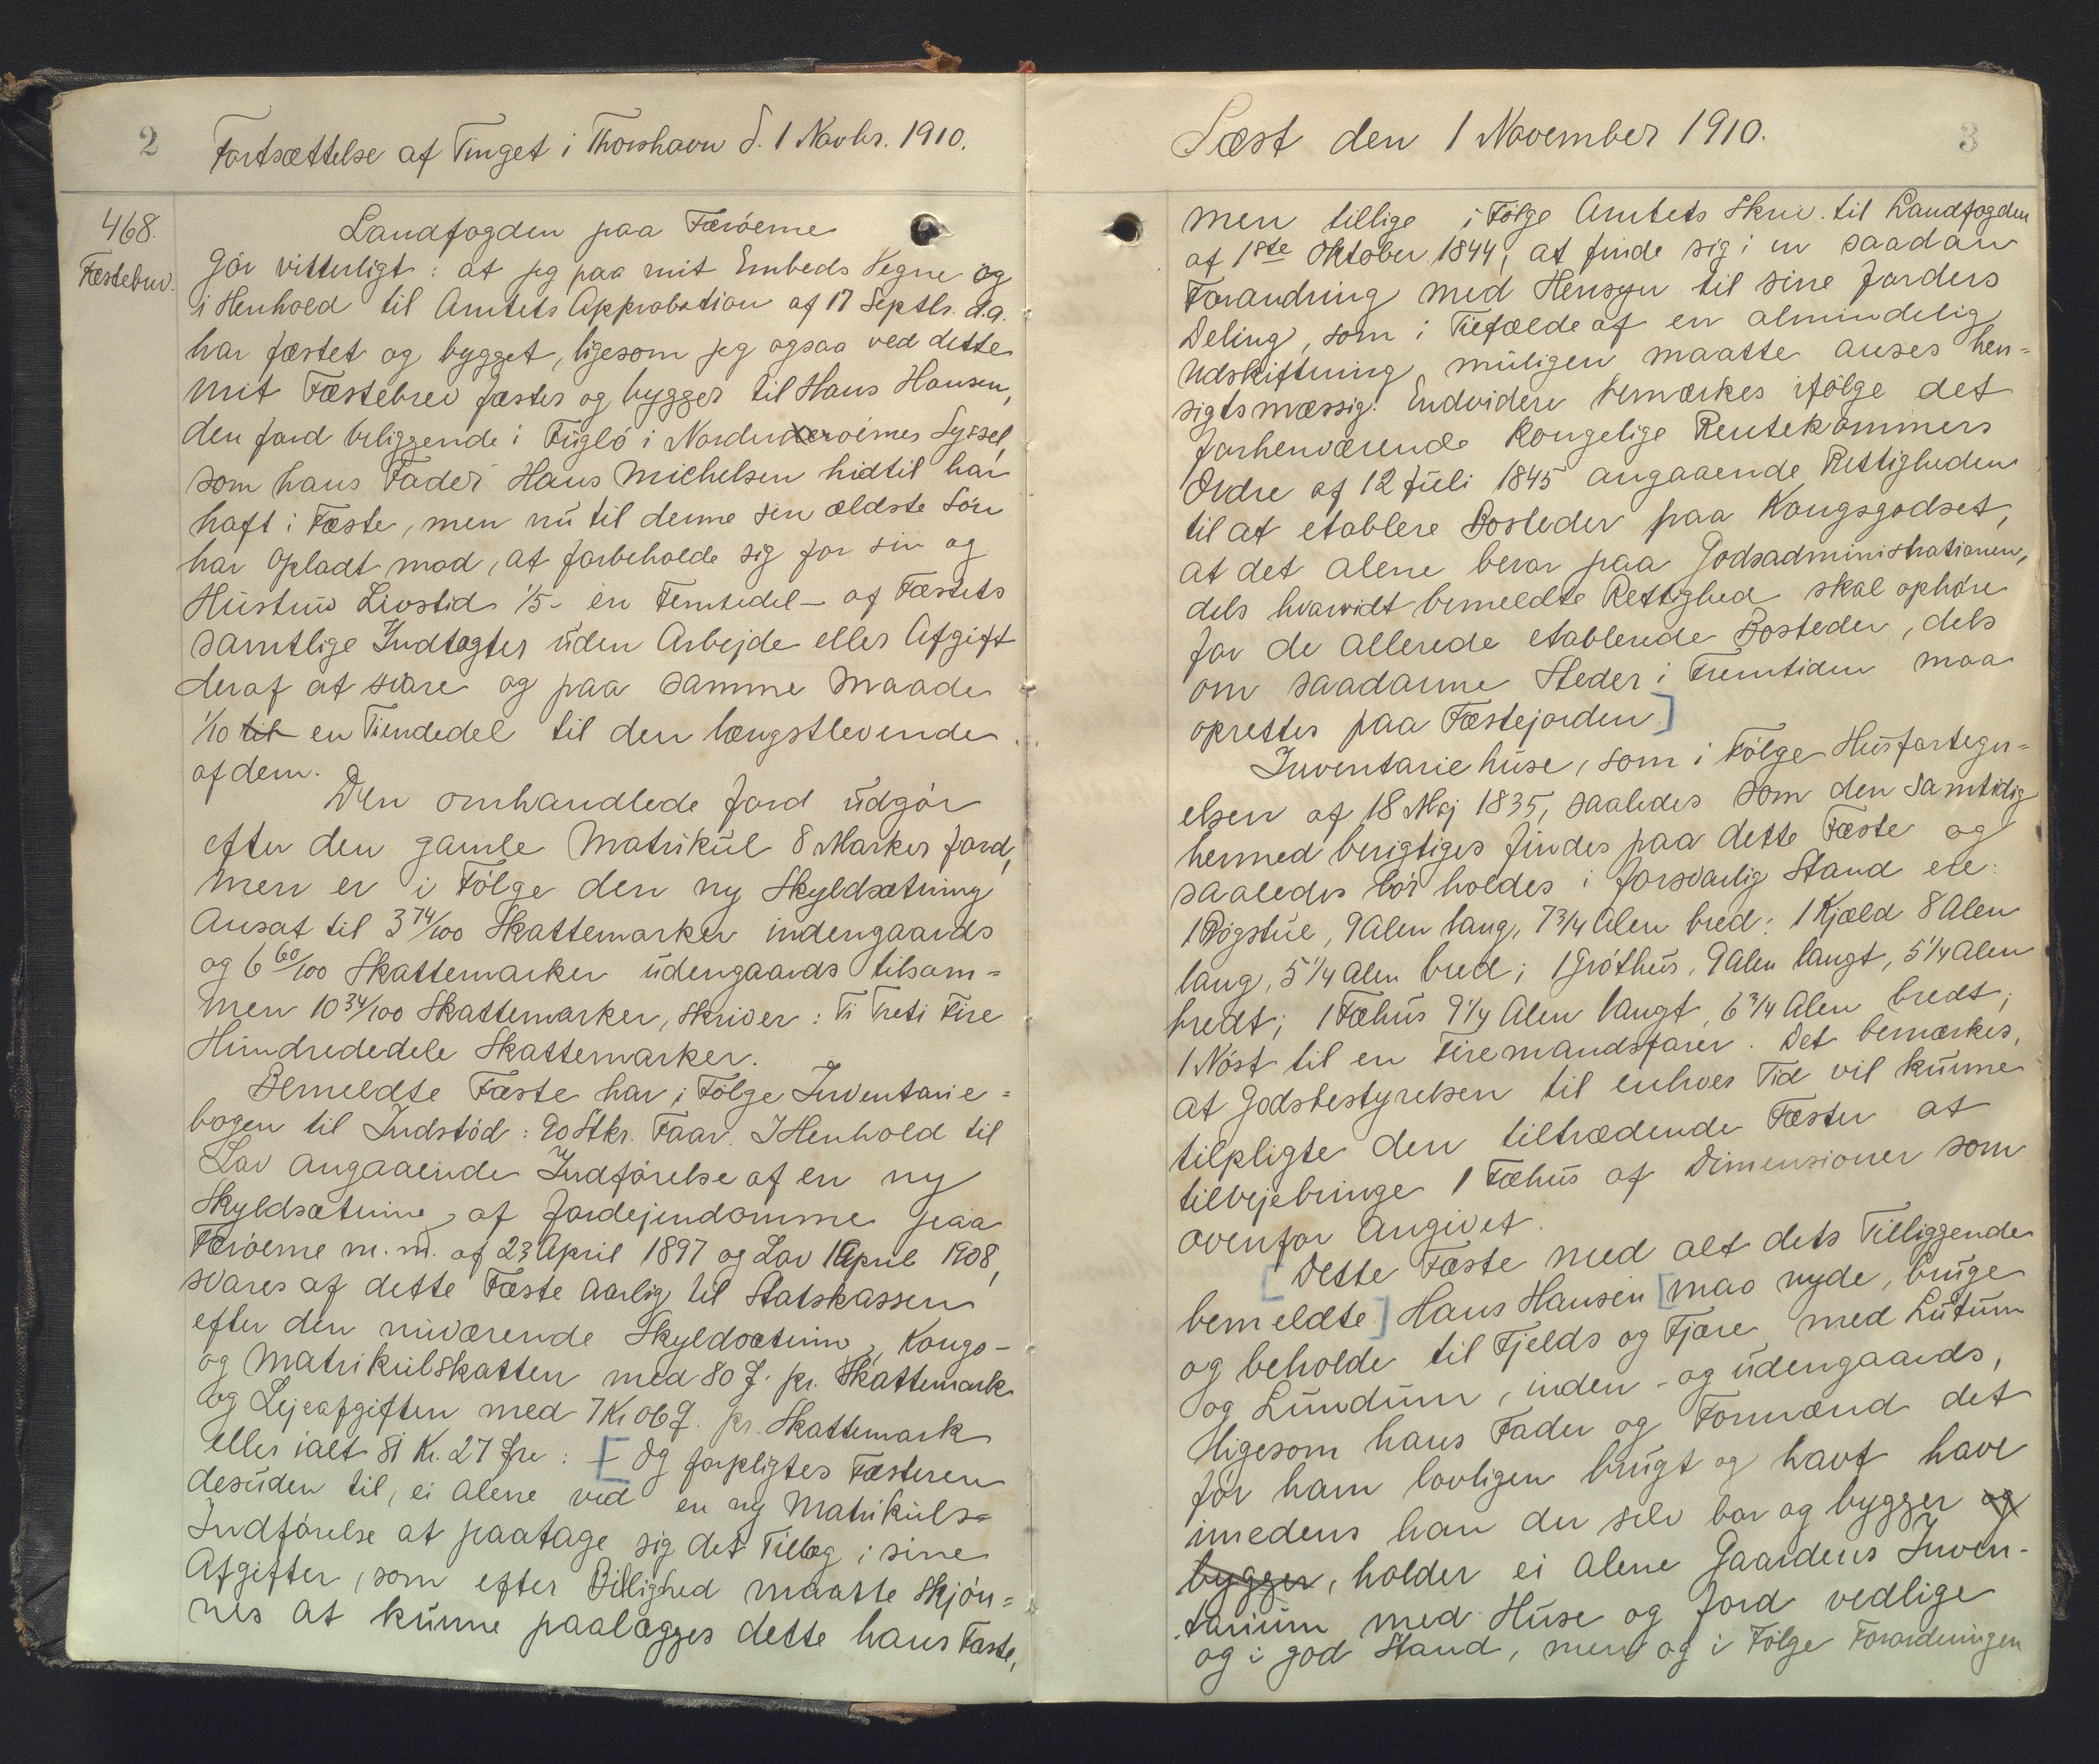 2
Fortsættelse af Tinget i Thorshavn d. 1 Novbr. 1910.
468.
Fæstebrev.
Landfogden paa Færöerne
Gör vitterligt: at jeg paa mit Embeds Vegne og
i Henhold til Amtets Approbation af 17 Septbr. d.a.
har fæstet og bygget, ligesom jeg ogsaa ved dette
mit Fæstebrev fæster og bygger til Hans Hansen,
den Jord beliggende i Fuglö i Norderöernes Syssel,
som hans Fader Hans Michelsen hidtil har
haft i Fæste, men nu til denne sin ældste Sön
har opladt mod, at forbeholde sig for sin og
Hustrus Livstid 1/5 - en Femtedel - af Fæstets
samtlige Indtægter uden Arbejde eller Afgift
deraf at svare og paa samme Maade
1/10 til en Tiendedel til den længstlevende
af dem.
Den omhandlede Jord udgör
efter den gamle Matrikul 8 Marker Jord,
men er i Fölge den ny Skyldsætning
Ansat til 3 74/100 Skattemarker indengaards
og 6 60/100 Skattemarker udengaards tilsam=
men 10 34/100 Skattemarker, skriver: Ti Treti Fire
Hundrededele Skattemarker.
Bemeldte Fæste har i Fölge Inventarie=
bogen til Indstöd: 90 Stkr. Faar. I Henhold til
Lov angaaende Indförelse af en ny
Skyldsætning af Jordejendomme paa
Færöerne m.m. af 23 April 1897 og Lov 1 April 1908,
svares af dette Fæste aarlig til Statskassen
efter den nuværende Skyldsætning, Kongs-
og Matrikulskatten med 80 Ø. pr. Skattemark
og Lejeafgiften med 7 Kr 06 Ø. pr. Skattemark
eller ialt 81 Kr. 27 Øre: [- Og forpligtes Fæsteren
desuden til, ei alene ved en ny Matrikuls=
Indförelse at paatage sig det Tillæg i sine
Afgifter, som efter Billighed maatte skjön=
nes at kunne paalægges dette hans Fæste,
Læst den 1 November 1910.
3
men tillige i Fölge Amtets Skriv. til Landfogden
af 1ste Oktober 1844, at finde sig i en saadan
Forandring med Hensyn til sine Jorders
Deling, som i Tilfælde af en almindelig
Udskiftning muligen maatte anses hen=
sigtsmæssig. Endvidere bemærkes ifölge det
forhenværende Kongelige Rentekammers
Ordre af 12 Juli 1845 angaaende Rettigheden
til at etablere Bosteder paa Kongsgodset,
at det alene beror paa Godsadministrationen,
dels hvorvidt bemeldte Rettighed skal ophöre
for de allerede etablerede Bosteder, dels
om saadanne Steder i Fremtiden maa
oprettes paa Fæstejorden.]
Inventariehuse, som i Fölge Husfortegn=
elsen af 18 Maj 1835, saaledes som den samtidig
hermed berigtiges findes paa dette Fæste og
saaledes bör holdes i forsvarlig Stand ere:
1 Rögstue, 9 Alen lang, 7 3/4 Alen bred; 1 Kjæld 8 Alen
lang, 5 1/4 Alen bred; 1 Gróthus, 9 Alen langt, 5 1/4 Alen
bredt; 1 Fæhus 9 1/4 Alen langt, 6 3/4 Alen bredt;
1 Nöst til en Firemandsfarer. Det bemærkes,
at Godsbestyrelsen til enhver Tid vil kunne
tilpligte den tiltrædende Fæster at
tilvejebringe 1 Fæhus af Dimensioner som
ovenfor angivet.
[Dette Fæste med alt dets Tilliggende
bemeldte] Hans Hansen [maa nyde, bruge
og beholde til Fjelds og Fjære med Lutum
og Lundum, inden- og udengaards,
ligesom hans Fader og Formænd det
för ham lovligen brugt og havt have
imedens han der selv bor og bygger og
bygger, holder ei alene Gaardens Inven-
tarium med Huse og Jord vedlige
og i god Stand, men og i Fölge Forordningen